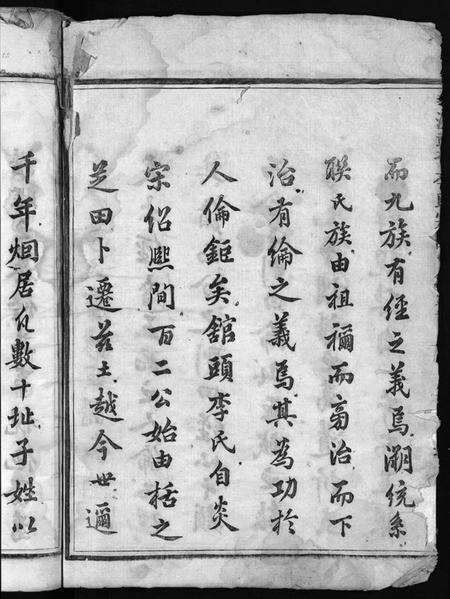 而九族有經之義焉溯統系
联氏族由祖禰而旁治而下
治有倫之義焉其為功於
人倫鉅矣舘頭李氏自炎
宋紹熙間百二公始由括之
芝田卜遷茲土越今世邇
千年烟居瓦數十址子姓以